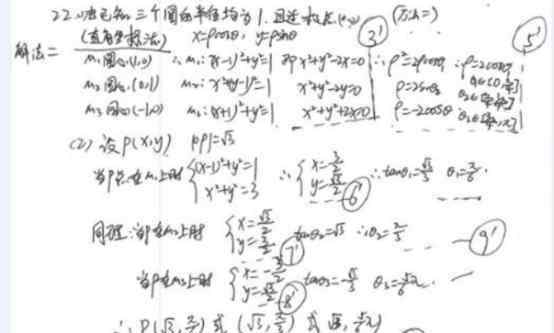 22. 解法已知三个圆的半径均为1. 且过极点(0,0) (方法二)
解法二 (直角坐标法) x=ρcosθ, y=ρsinθ 3' 5'
M₁圆心(1,0) ∴ M₁:(x-1)²+y²=1 即 x²+y²-2x=0 ∴ ρ²=2ρcosθ ∴ρ=2cosθ
M₂圆心(0,1) M₂: x²+(y-1)²=1 x²+y²-2y=0 ρ=2sinθ
M₃圆心(-1,0) M₃:(x+1)²+y²=1 x²+y²+2x=0 ρ=-2cosθ
(2) 设P(x,y) |OP|=√3
当P点在M₁上时 {(x-1)²+y²=1 x²+y²=3 ∴ {x=3/2 y=√3/2 6' ∴tanθ₁=√3/3 θ₁=π/6.
同理:当P在M₂上时 {x=√3/2 y=3/2 7' tanθ₂=√3 ∴θ₂=π/3 9'
当P在M₃上时 {x=-3/2 y=√3/2 8' tanθ₃=-√3/3 θ₃=5/6π.
∴ P(√3, π/6) 或 (√3, π/3) 或 (√3, 5/6π)